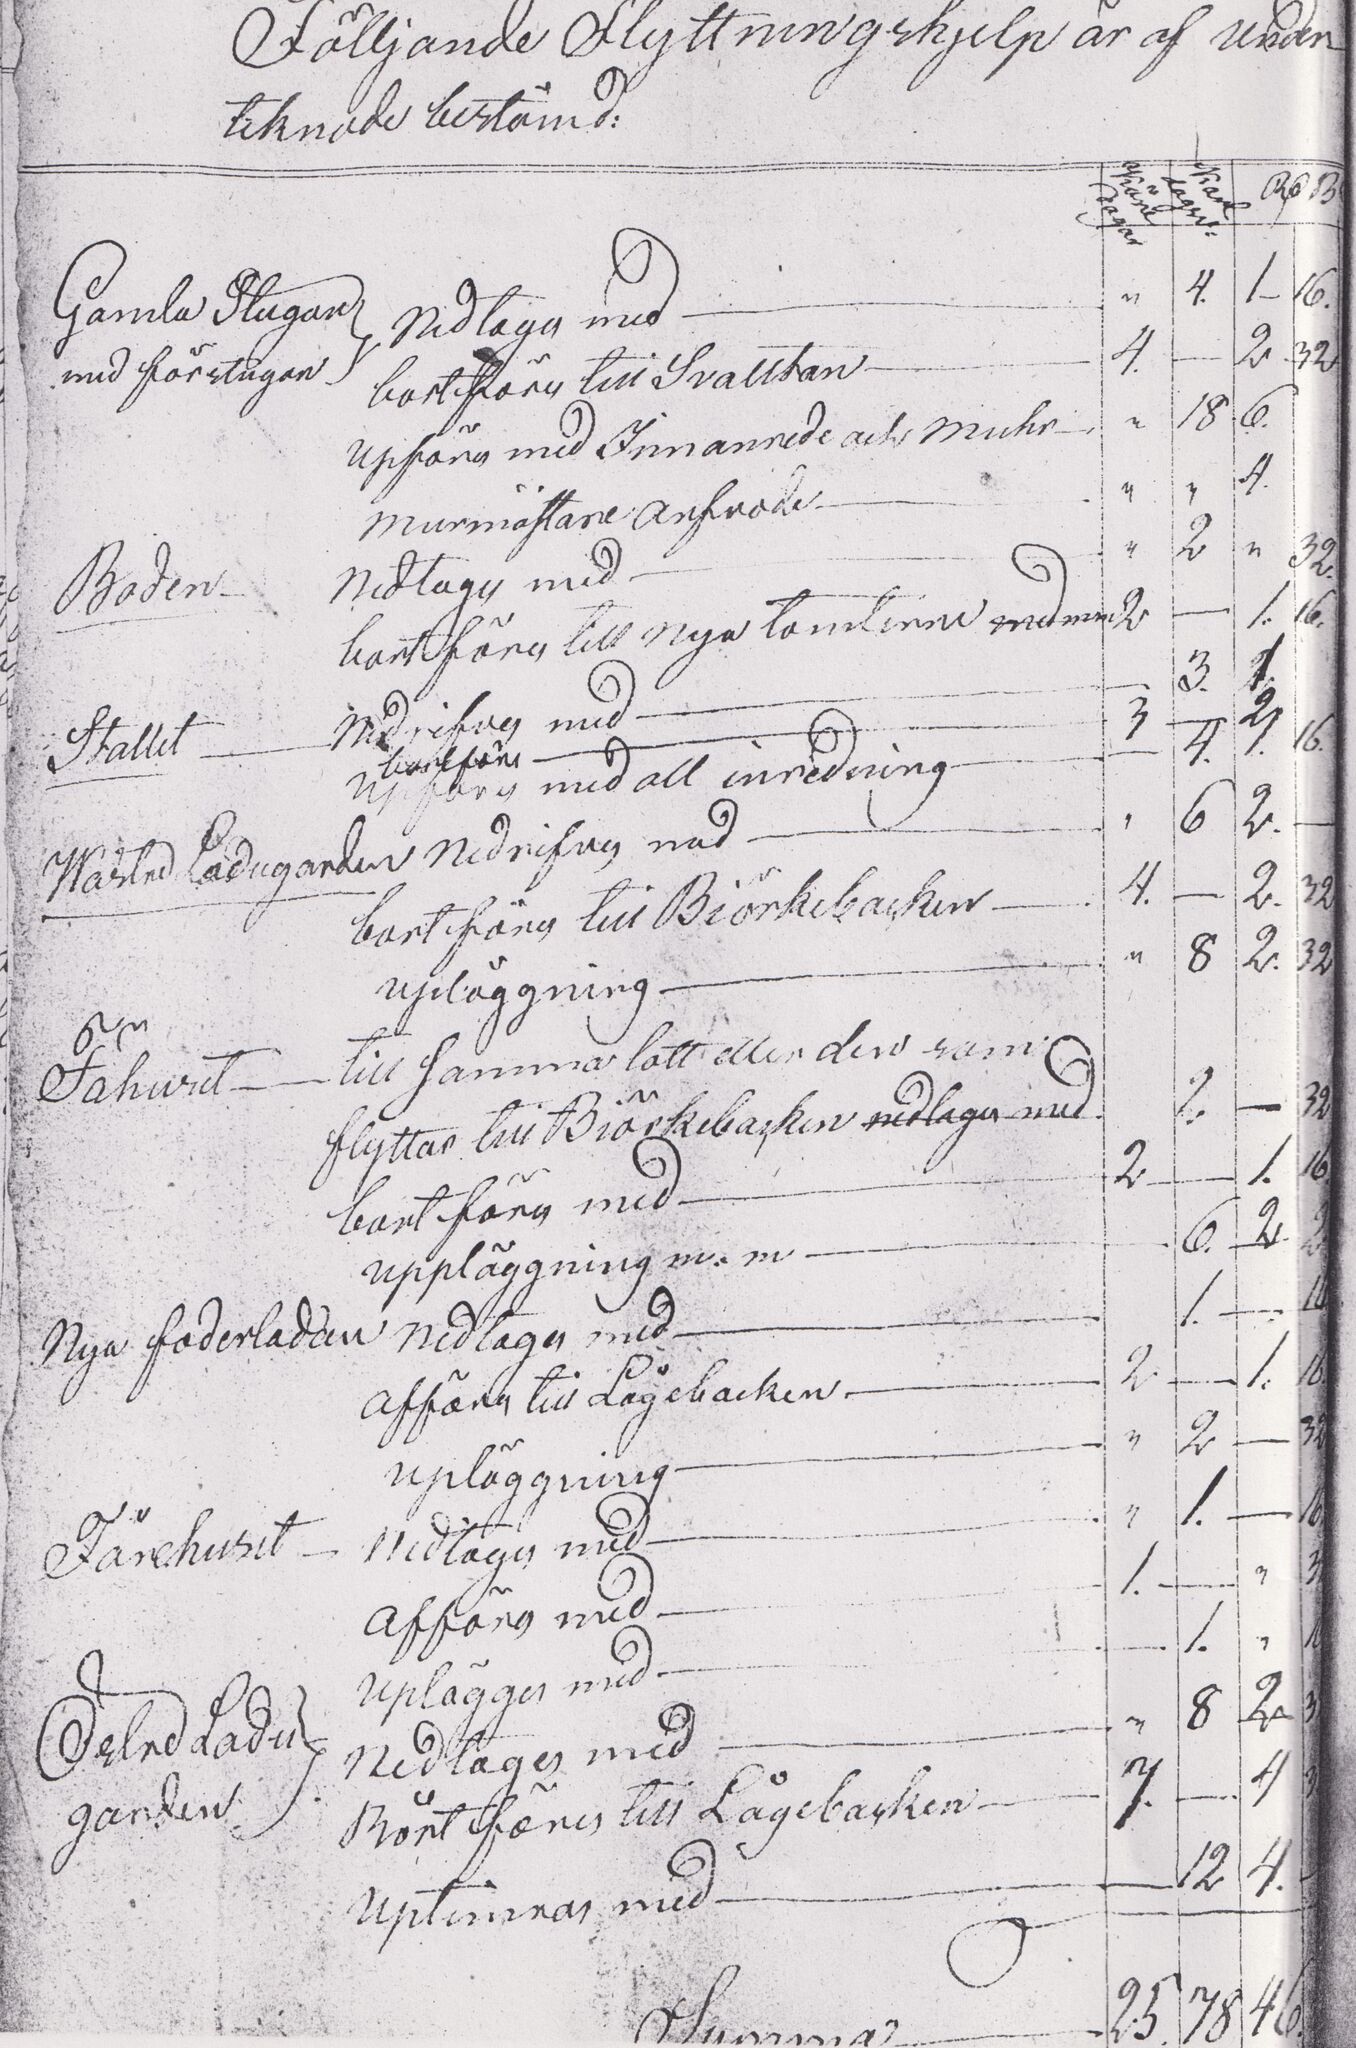 Följande Flyttningshjelp är af under
teknade bestämd:
Köre dagar Karl dagsv: Rd B
Gamla Stugan Nedtages med — " 4. 1 — 16.
med förstugan bortföres till Svalltan — 4. — 2 32
Upföres med Innanrede och Muhr — " 18 6.
Murmästare Arfvode — " " 4.
Boden — Nedtages med — " 2 " 32.
bortföres till Nya tomterne med 2 — 1. 16.
Stallet — Nedrifves med — 3. 1.
bortföres — 3 — 2
Upföres med all inredning — 4. 1. 16.
Wästra Ladugården Nedrifves med — " 6 2. —
bortföres till Biörkebacken — 4. — 2. 32
Upläggning — " 8 2. 32
Fähuset — till samma lott eller den som
flyttar till Biörkebacken nedtages med 2. — 32
bortföres med — 2 — 1. 16
Uppläggning m. m — 6. 2.
Nya foderladan Nedtages med — 1. — 16
Afföres till Lågebacken — 2 — 1. 16
Upläggning — " 2 — 32
Fårehuset — Nedtages med — " 1. — 16
Afföres med — 1. — "
Uplägges med — 1. "
Östra Ladu Nedtages med — " 8 2
gården Bortföres till Lågebacken — 7. — 4
Uptimras med — 12 4. —
Summa — 25. 78 46.